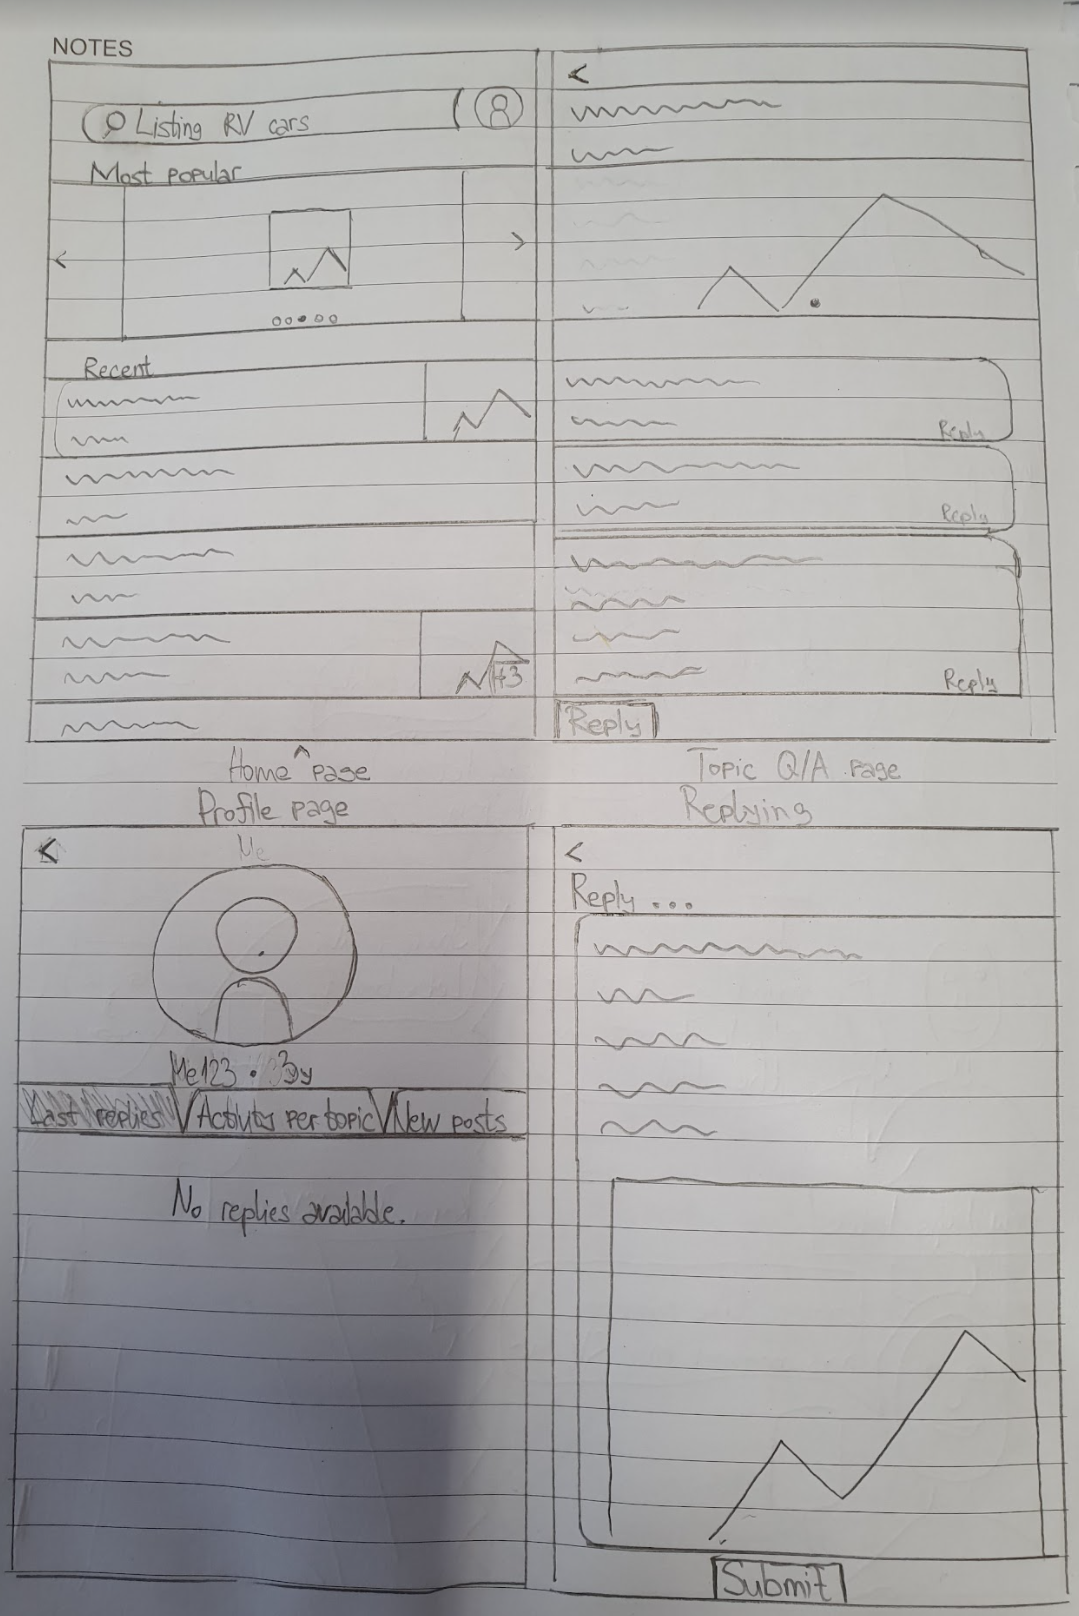 NOTES
Listing RV cars
Most popular
<
>
Recent
+3
Home page
<
Reply
Reply
Reply
Reply
Topic Q/A page
Profile page
<
Me
Me123 • 3y
Last replies
Activity per topic
New posts
No replies available.
Replying
<
Reply ...
Submit